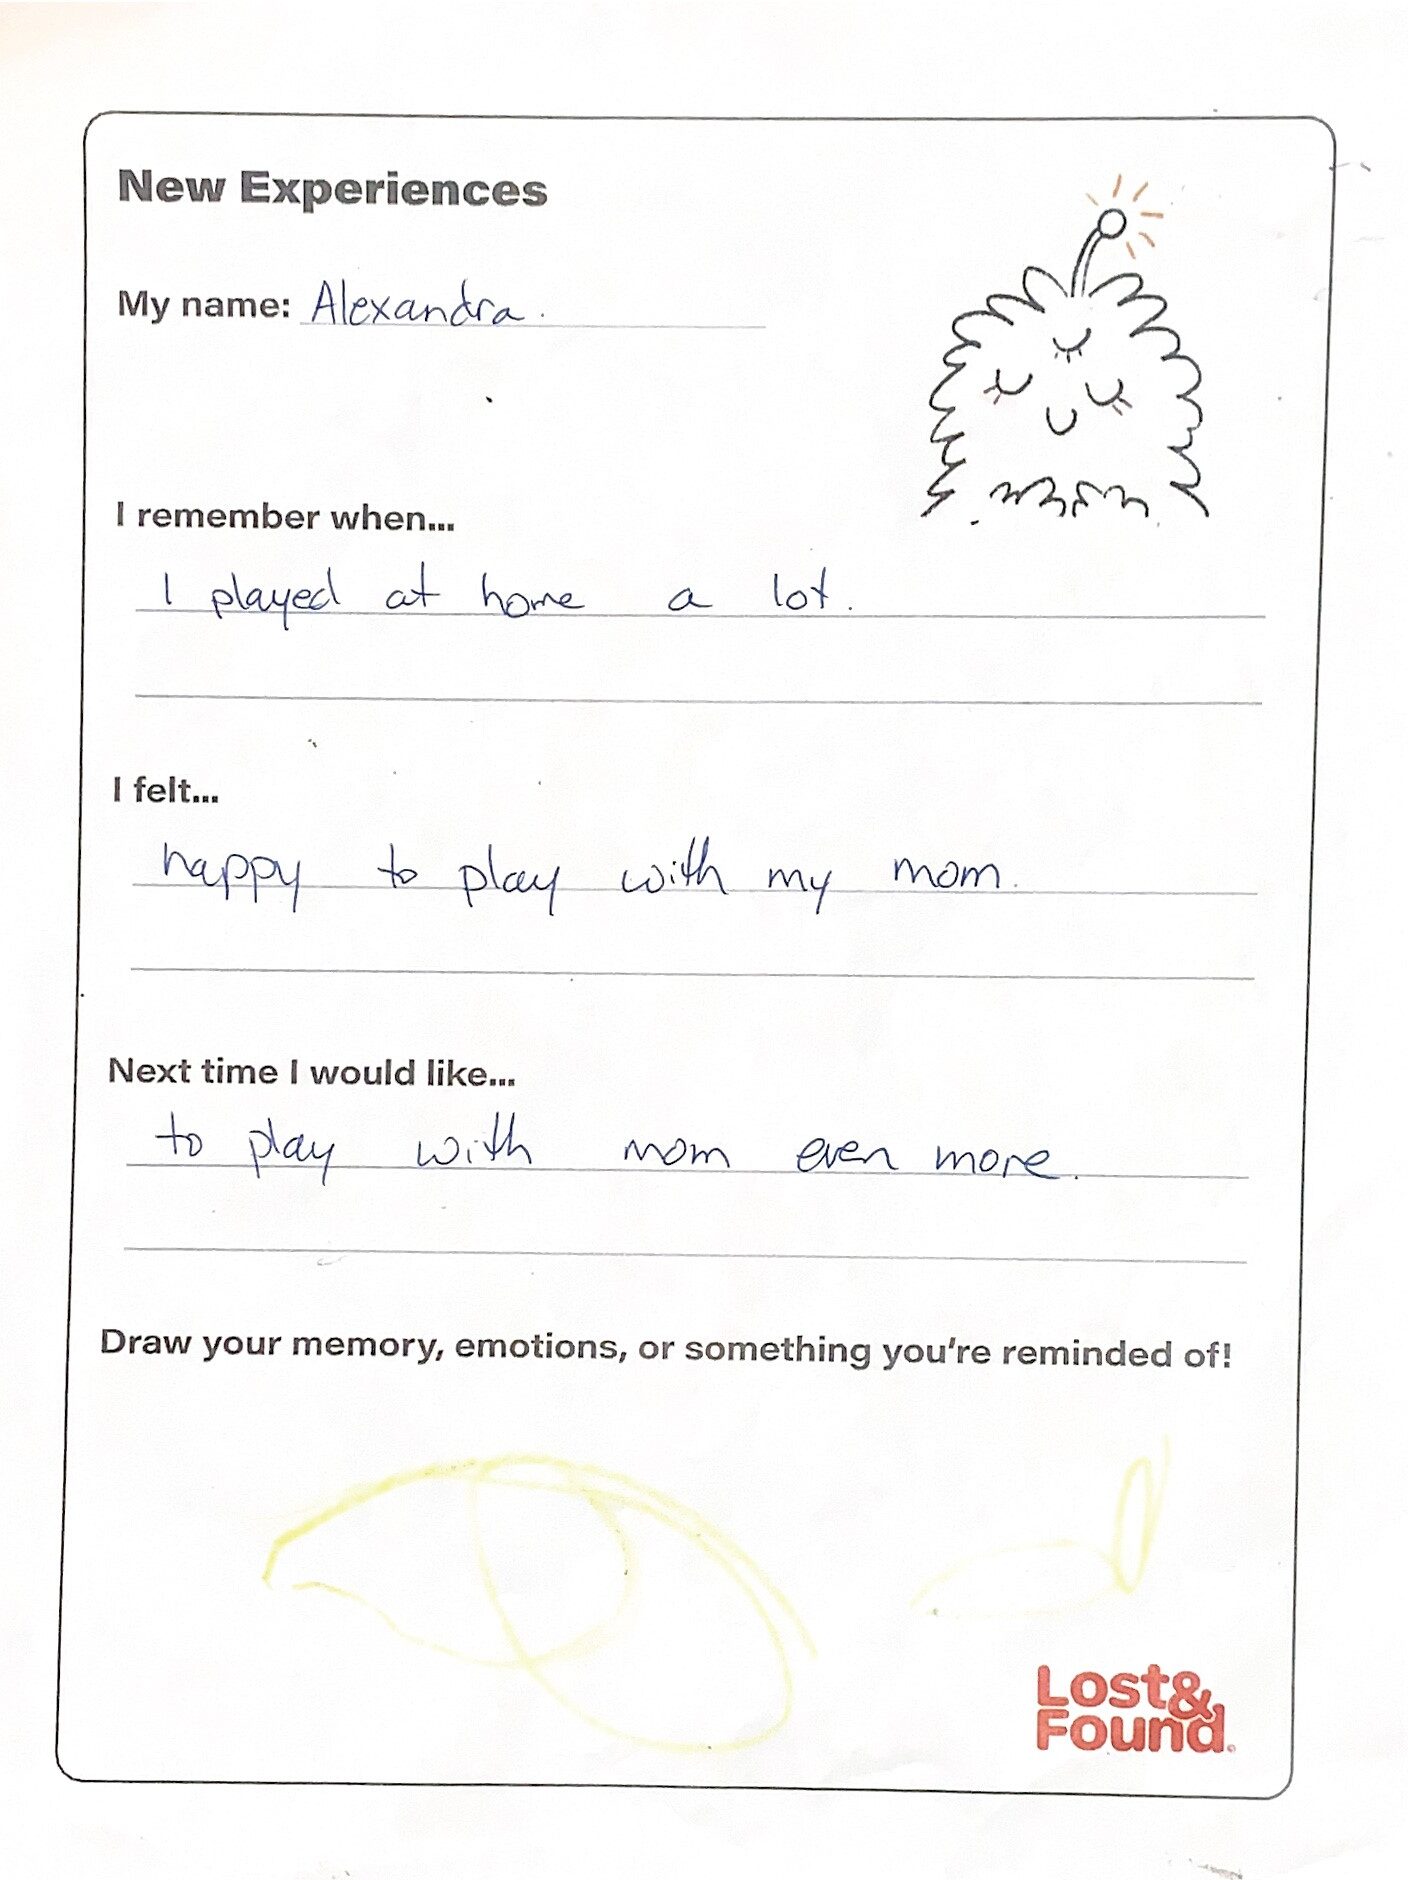 New Experiences
My name: Alexandra.
I remember when...
I played at home a lot.
I felt...
happy to play with my mom.
Next time I would like...
to play with mom even more.
Draw your memory, emotions, or something you're reminded of!
Lost&
Found